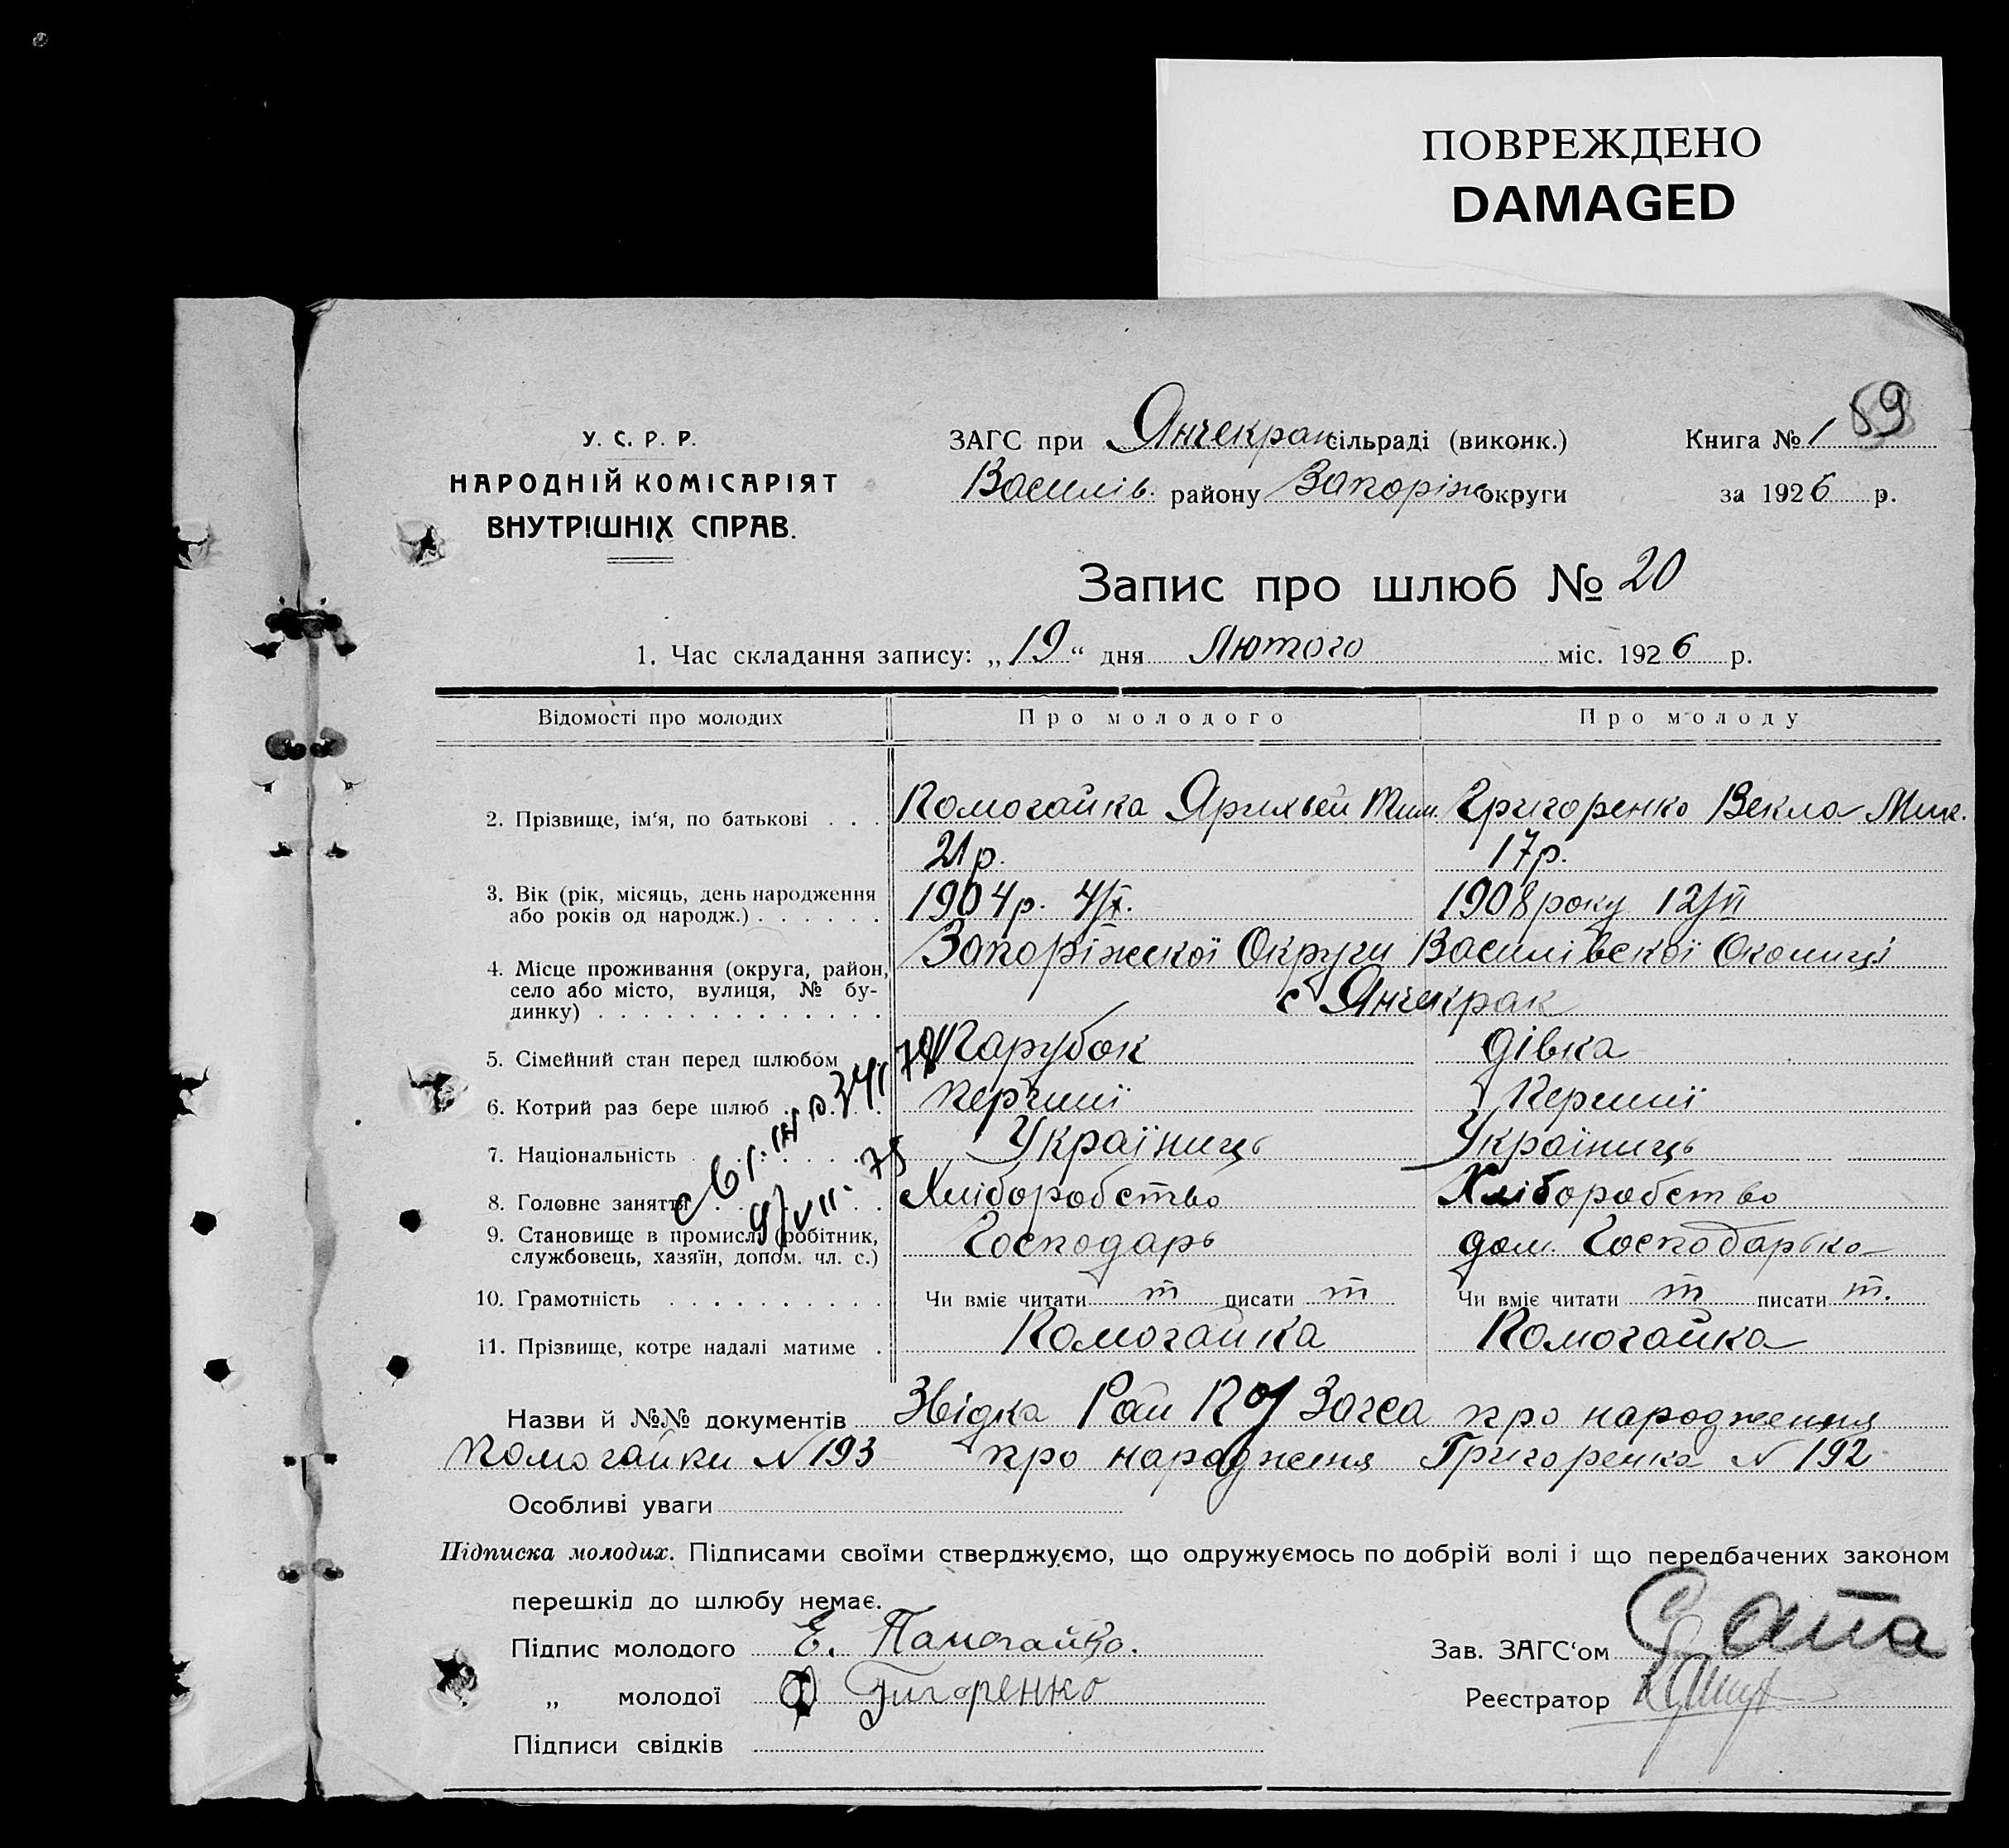 ПОВРЕЖДЕНО
DAMAGED
У. С. Р. Р.
НАРОДНІЙ КОМІСАРІЯТ
ВНУТРІШНІХ СПРАВ.
ЗАГС при Янчекрак сільраді (виконк.)
Василів. району Запоріж округи
Книга № 1 89
за 1926 р.
Запис про шлюб № 20
1. Час складання запису: „19“ дня Лютого міс. 1926 р.
Відомості про молодих Про молодого Про молоду
2. Прізвище, ім‘я, по батькові . . . Помогайка Тим. Григоренко Векла Мик.
21 р. 17 р.
3. Вік (рік, місяць, день народження
або років од народж.) . . . . . . 1904 р. 1908 року
4. Місце проживання (округа, район,
село або місто, вулиця, № бу-
динку) . . . . . . . . . . . . .
Запоріжскої Округи Василівскої Околиці
с Янчекрак
5. Сімейний стан перед шлюбом Парубок дівка
6. Котрий раз бере шлюб перчиї Перший
7. Національність Україниць Україниць
8. Головне заняття Хліборобство Хліборобство
9. Становище в промислі (робітник,
службовець, хазяїн, допом. чл. с.) Господарь дом. Господарька
10. Грамотність . . . . . . . . . . Чи вміє читати т писати т Чи вміє читати т писати т.
11. Прізвище, котре надалі матиме . Помогайка Помогайка
Назви й №№ документів Звідка Рай Загса про народження
Помогайки N 193 про народження Григоренка N 192
Особливі уваги
Підписка молодих. Підписами своїми стверджуємо, що одружуємось по добрій волі і що передбачених законом
перешкід до шлюбу немає.
Підпис молодого Е. Памогайко.
„ молодої Ф Григоренко
Підписи свідків
Зав. ЗАГС‘ом
Реєстратор